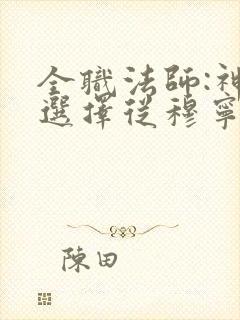 全職法師:神
選擇從穆寧
陳田